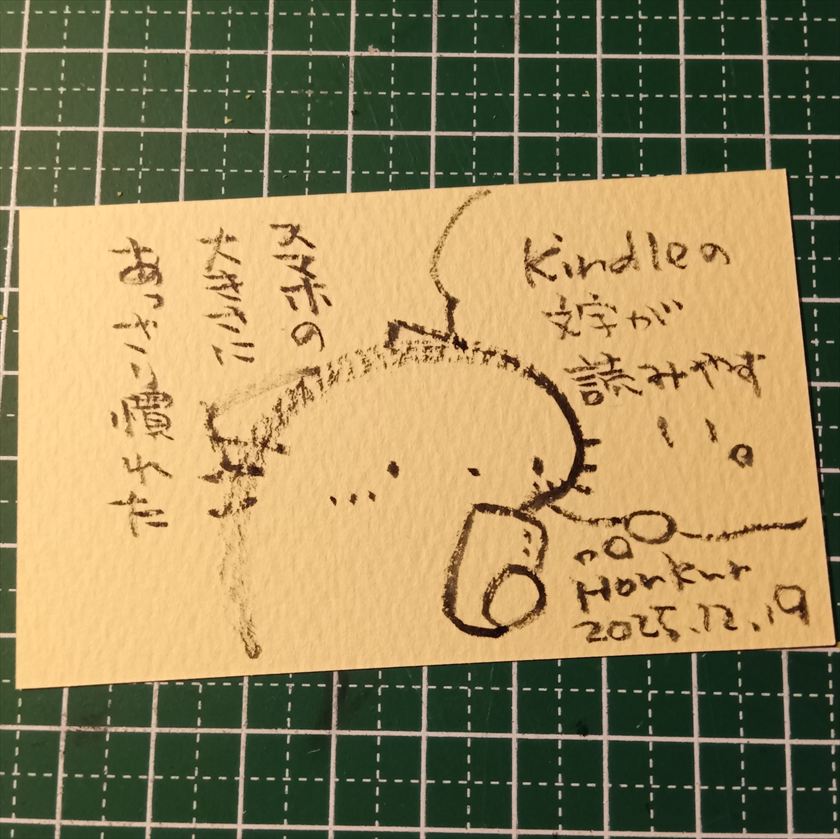 Kindleの
文字が
読みやす
いい。
スマホの
大きさに
あっさり慣れた
Honkur
2025.12.19